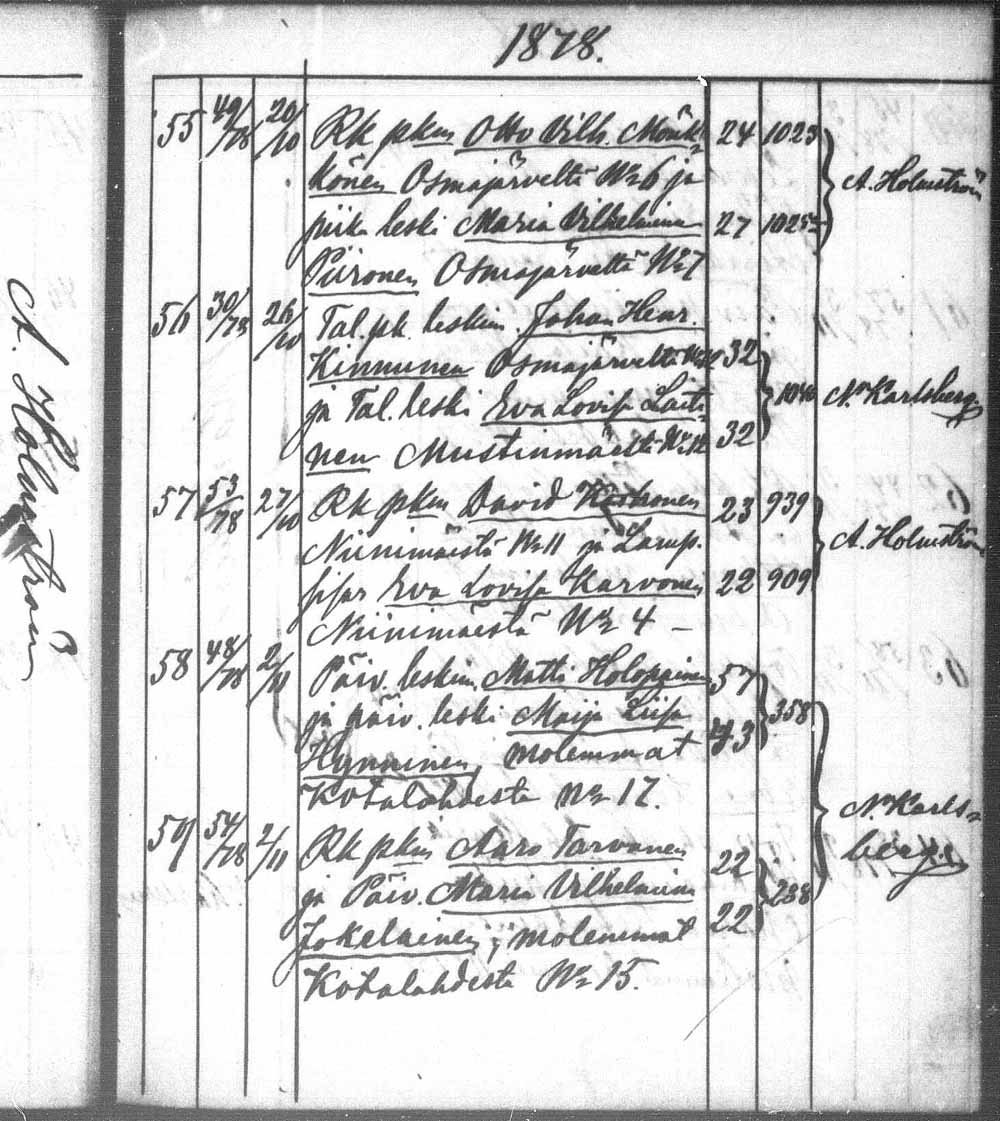 1878.
55 49/78 20/10 Rk pkm Otto Vilh. Mönk- 24 1023
könen Osmajärveltä No 6 ja A. Holmström
piika leski Maria Vilhelmina 27 1025
Piironen Osmajärveltä No 7
56 30/78 26/10 Tal. pk. leskim. Johan Henr.
Kinnunen Osmajärveltä 32
ja Tal. leski Eva Lovisa Laiti- 1046 N. Karlsberg.
nen Mustinmäeltä 32
57 53/78 27/10 Rk pkm David Korhonen 23 939
Niinimäestä No 11 ja Lamp. A. Holmström
sisar Eva Lovisa Karvonen 22 909
Niinimäestä No 4 –
58 48/78 2/11 Päiv. leskim. Matti Holoppainen 57
ja päiv. leski Maija Liisa 43 358
Hynninen, molemmat
Kotalahdesta No 17. N. Karls-
59 54/78 2/11 Rk pkm Aaro Tarvanen 22 berg.
ja Päiv. Maria Vilhelmina 238
Jokelainen, molemmat 22
Kotalahdesta No 15.
A. Holmström